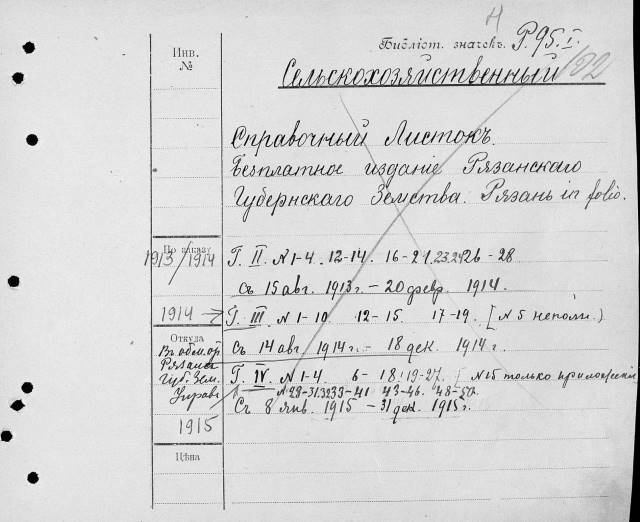 Н
Инв.
№
Библіот. значекъ. Р.95.I.
132
Сельскохозяйственный
Справочный Листокъ.
Безплатное изданіе Рязанскаго
Губернскаго Земства. Рязань in folio.
По заказу
1913/1914
Г. II. N 1-4. 12-14. 16-21.23.24 26-28
съ 15 авг. 1913 г. - 20 февр. 1914.
1914 →
Г. III N 1-10 12-15. 17-19. [N 5 неполн.)
Откуда
Въ обм. от
Съ 14 авг. 1914 г. - 18 дек. 1914 г.
Рязанс
Губ. Зем.
Управ
Г. IV. N 1-4. 6-18. 19-27. [N 15 только приложеніе
N 28-31.32 33-41 43-46. 48-50.
Съ 8 янв. 1915 - 31 дек. 1915 г.
1915
Цѣна